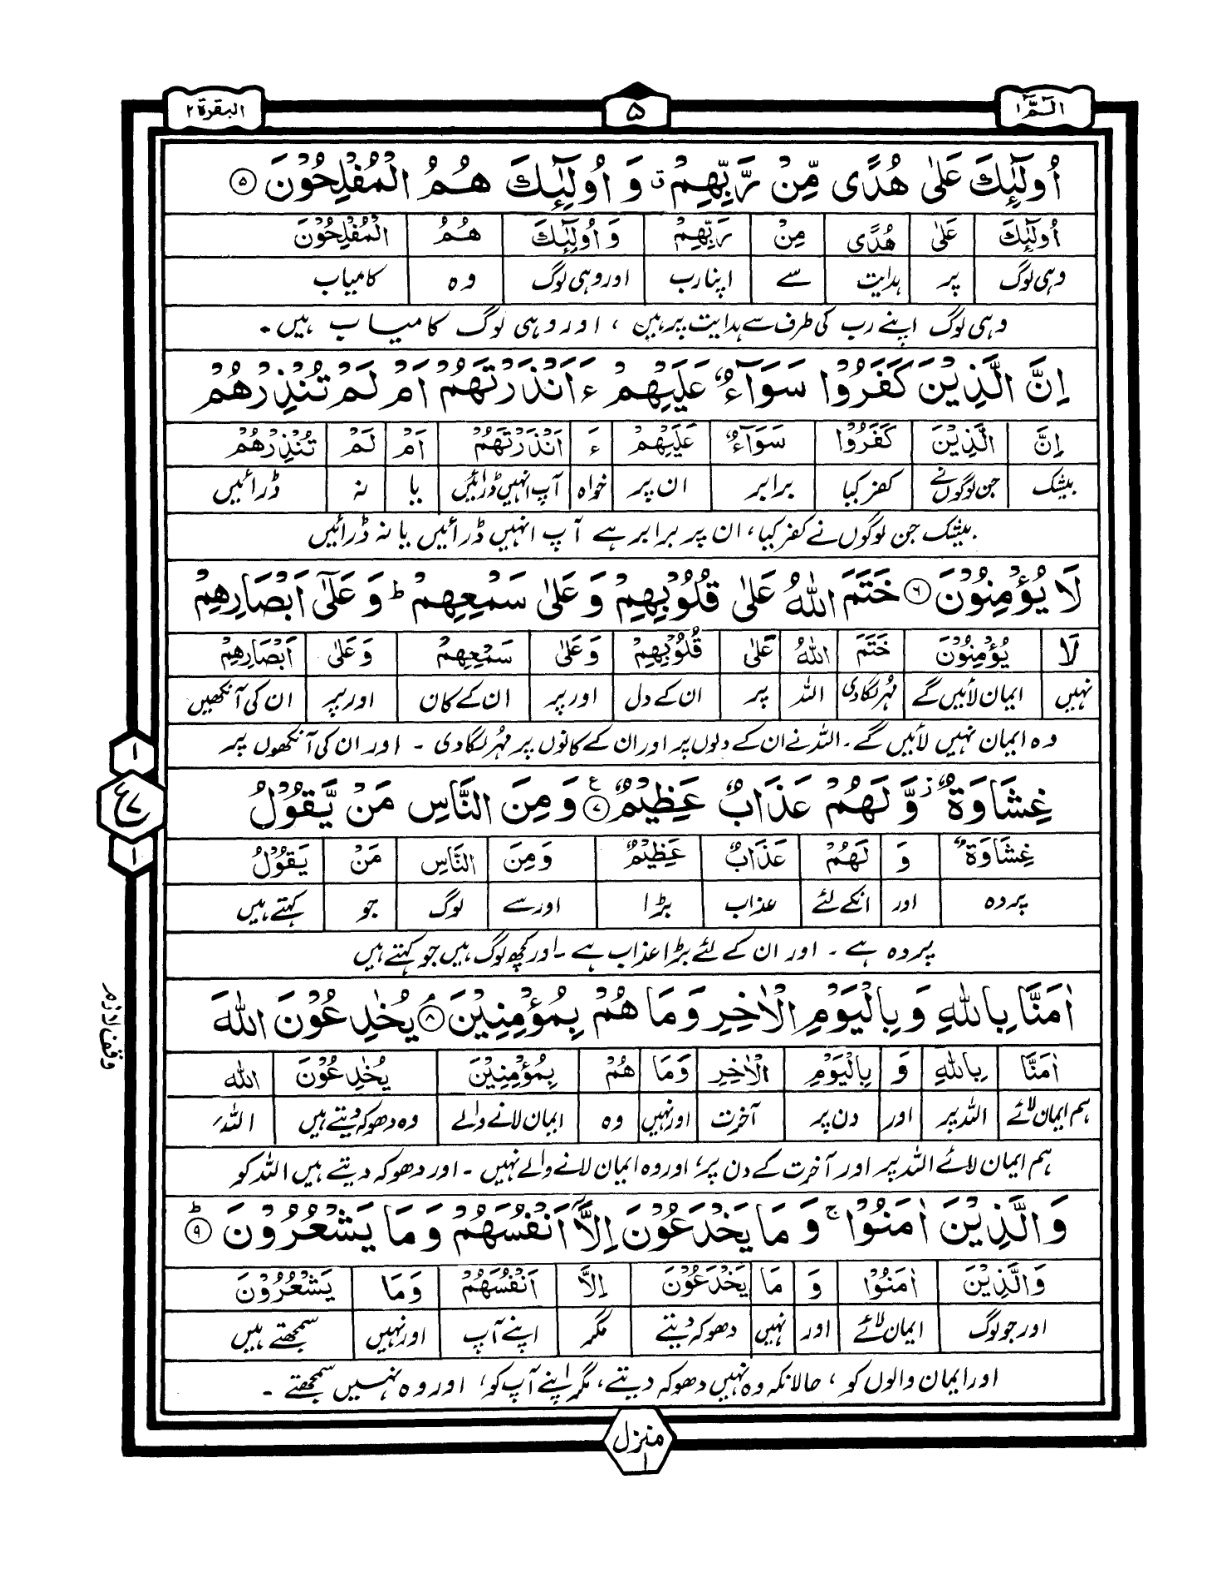 الٓمّٓ ١
۵
البقرة ٢
اُولٰٓئِكَ عَلٰى هُدًى مِّنْ رَّبِّهِمْ ۗ وَ اُولٰٓئِكَ هُمُ الْمُفْلِحُوْنَ ۝۵
اُولٰٓئِكَ عَلٰى هُدًى مِنْ رَبِّهِمْ وَ اُولٰٓئِكَ هُمُ الْمُفْلِحُوْنَ
وہی لوگ پر ہدایت سے اپنا رب اور وہی لوگ وہ کامیاب
وہی لوگ اپنے رب کی طرف سے ہدایت پر ہیں ، اور وہی لوگ کامیاب ہیں۔
اِنَّ الَّذِيْنَ كَفَرُوْا سَوَآءٌ عَلَيْهِمْ ءَاَنْذَرْتَهُمْ اَمْ لَمْ تُنْذِرْهُمْ
اِنَّ الَّذِيْنَ كَفَرُوْا سَوَآءٌ عَلَيْهِمْ ءَ اَنْذَرْتَهُمْ اَمْ لَمْ تُنْذِرْهُمْ
بیشک جن لوگوں نے کفر کیا برابر ان پر خواہ آپ انہیں ڈرائیں یا نہ ڈرائیں
بیشک جن لوگوں نے کفر کیا، ان پر برابر ہے آپ انہیں ڈرائیں یا نہ ڈرائیں
لَا يُؤْمِنُوْنَ ۝٦ خَتَمَ اللّٰهُ عَلٰى قُلُوْبِهِمْ وَ عَلٰى سَمْعِهِمْ ؕ وَ عَلٰٓى اَبْصَارِهِمْ
لَا يُؤْمِنُوْنَ خَتَمَ اللّٰهُ عَلٰى قُلُوْبِهِمْ وَ عَلٰى سَمْعِهِمْ وَ عَلٰى اَبْصَارِهِمْ
نہیں ایمان لائیں گے مہر لگا دی اللہ پر ان کے دل اور پر ان کے کان اور پر ان کی آنکھیں
وہ ایمان نہیں لائیں گے۔ اللہ نے ان کے دلوں پر اور ان کے کانوں پر مہر لگا دی ۔ اور ان کی آنکھوں پر
١
ع ٧
١
غِشَاوَةٌ ز وَّ لَهُمْ عَذَابٌ عَظِيْمٌ ۝٧ ع وَ مِنَ النَّاسِ مَنْ يَّقُوْلُ
غِشَاوَةٌ وَ لَهُمْ عَذَابٌ عَظِيْمٌ وَ مِنَ النَّاسِ مَنْ يَقُوْلُ
پردہ اور انکے لئے عذاب بڑا اور سے لوگ جو کہتے ہیں
پردہ ہے ۔ اور ان کے لئے بڑا عذاب ہے ۔ اور کچھ لوگ ہیں جو کہتے ہیں
وقف لازم
اٰمَنَّا بِاللّٰهِ وَ بِالْيَوْمِ الْاٰخِرِ وَ مَا هُمْ بِمُؤْمِنِيْنَ ۝٨ۘ يُخٰدِعُوْنَ اللّٰهَ
اٰمَنَّا بِاللّٰهِ وَ بِالْيَوْمِ الْاٰخِرِ وَ مَا هُمْ بِمُؤْمِنِيْنَ يُخٰدِعُوْنَ اللّٰهَ
ہم ایمان لائے اللہ پر اور دن پر آخرت اور نہیں وہ ایمان لانے والے وہ دھوکہ دیتے ہیں اللہ
ہم ایمان لائے اللہ پر اور آخرت کے دن پر، اور وہ ایمان لانے والے نہیں ۔ اور دھوکہ دیتے ہیں اللہ کو
وَ الَّذِيْنَ اٰمَنُوْا ۚ وَ مَا يَخْدَعُوْنَ اِلَّآ اَنْفُسَهُمْ وَ مَا يَشْعُرُوْنَ ۝٩ؕ
وَ الَّذِيْنَ اٰمَنُوْا وَ مَا يَخْدَعُوْنَ اِلَّا اَنْفُسَهُمْ وَ مَا يَشْعُرُوْنَ
اور جو لوگ ایمان لائے اور نہیں دھوکہ دیتے مگر اپنے آپ اور نہیں سمجھتے ہیں
اور ایمان والوں کو ، حالانکہ وہ نہیں دھوکہ دیتے، مگر اپنے آپ کو، اور وہ نہیں سمجھتے ۔
منزل ١